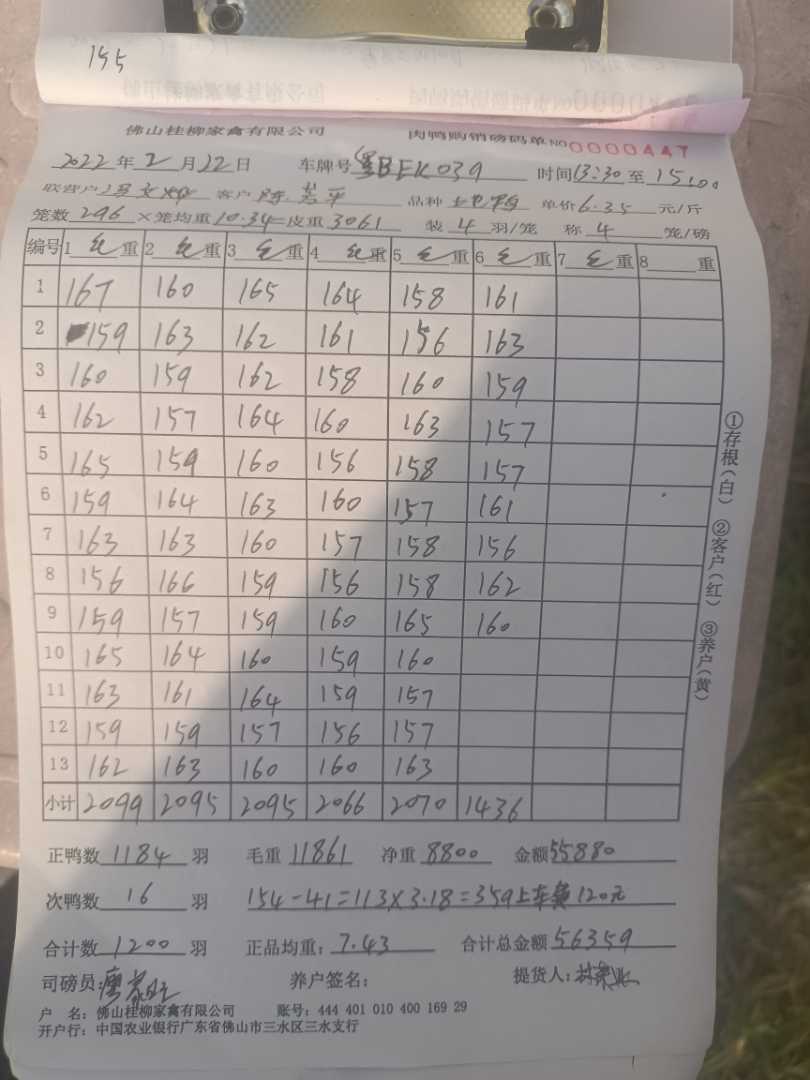 155
佛山桂柳家禽有限公司 肉鸭购销磅码单 №0000447
2022年2月22日 车牌号 粤BEK039 时间13:30至15:00
联营户 冯文 客户 陈 平 品种 单价6.35元/斤
笼数296×笼均重10.34=皮重3061 装4羽/笼 称4笼/磅
编号 1毛重 2毛重 3毛重 4毛重 5毛重 6毛重 7毛重 8重
1 167 160 165 164 158 161
2 159 163 162 161 156 163
3 160 159 162 158 160 159
4 162 157 164 160 163 157
5 165 159 160 156 158 157
6 159 164 163 160 157 161
7 163 163 160 157 158 156
8 156 166 159 156 158 162
9 159 157 159 160 165 160
10 165 164 160 159 160
11 163 161 164 159 157
12 159 159 157 156 157
13 162 163 160 160 163
小计 2099 2095 2095 2066 2070 1436
正鸭数1184羽 毛重11861 净重8800 金额55880
次鸭数16羽 154-41=113×3.18=359上车费120元
合计数1200羽 正品均重:7.43 合计总金额56359
司磅员: 养户签名: 提货人:
户 名:佛山桂柳家禽有限公司 账号:444 401 010 400 169 29
开户行:中国农业银行广东省佛山市三水区三水支行
①存根(白) ②客户(红) ③养户(黄)